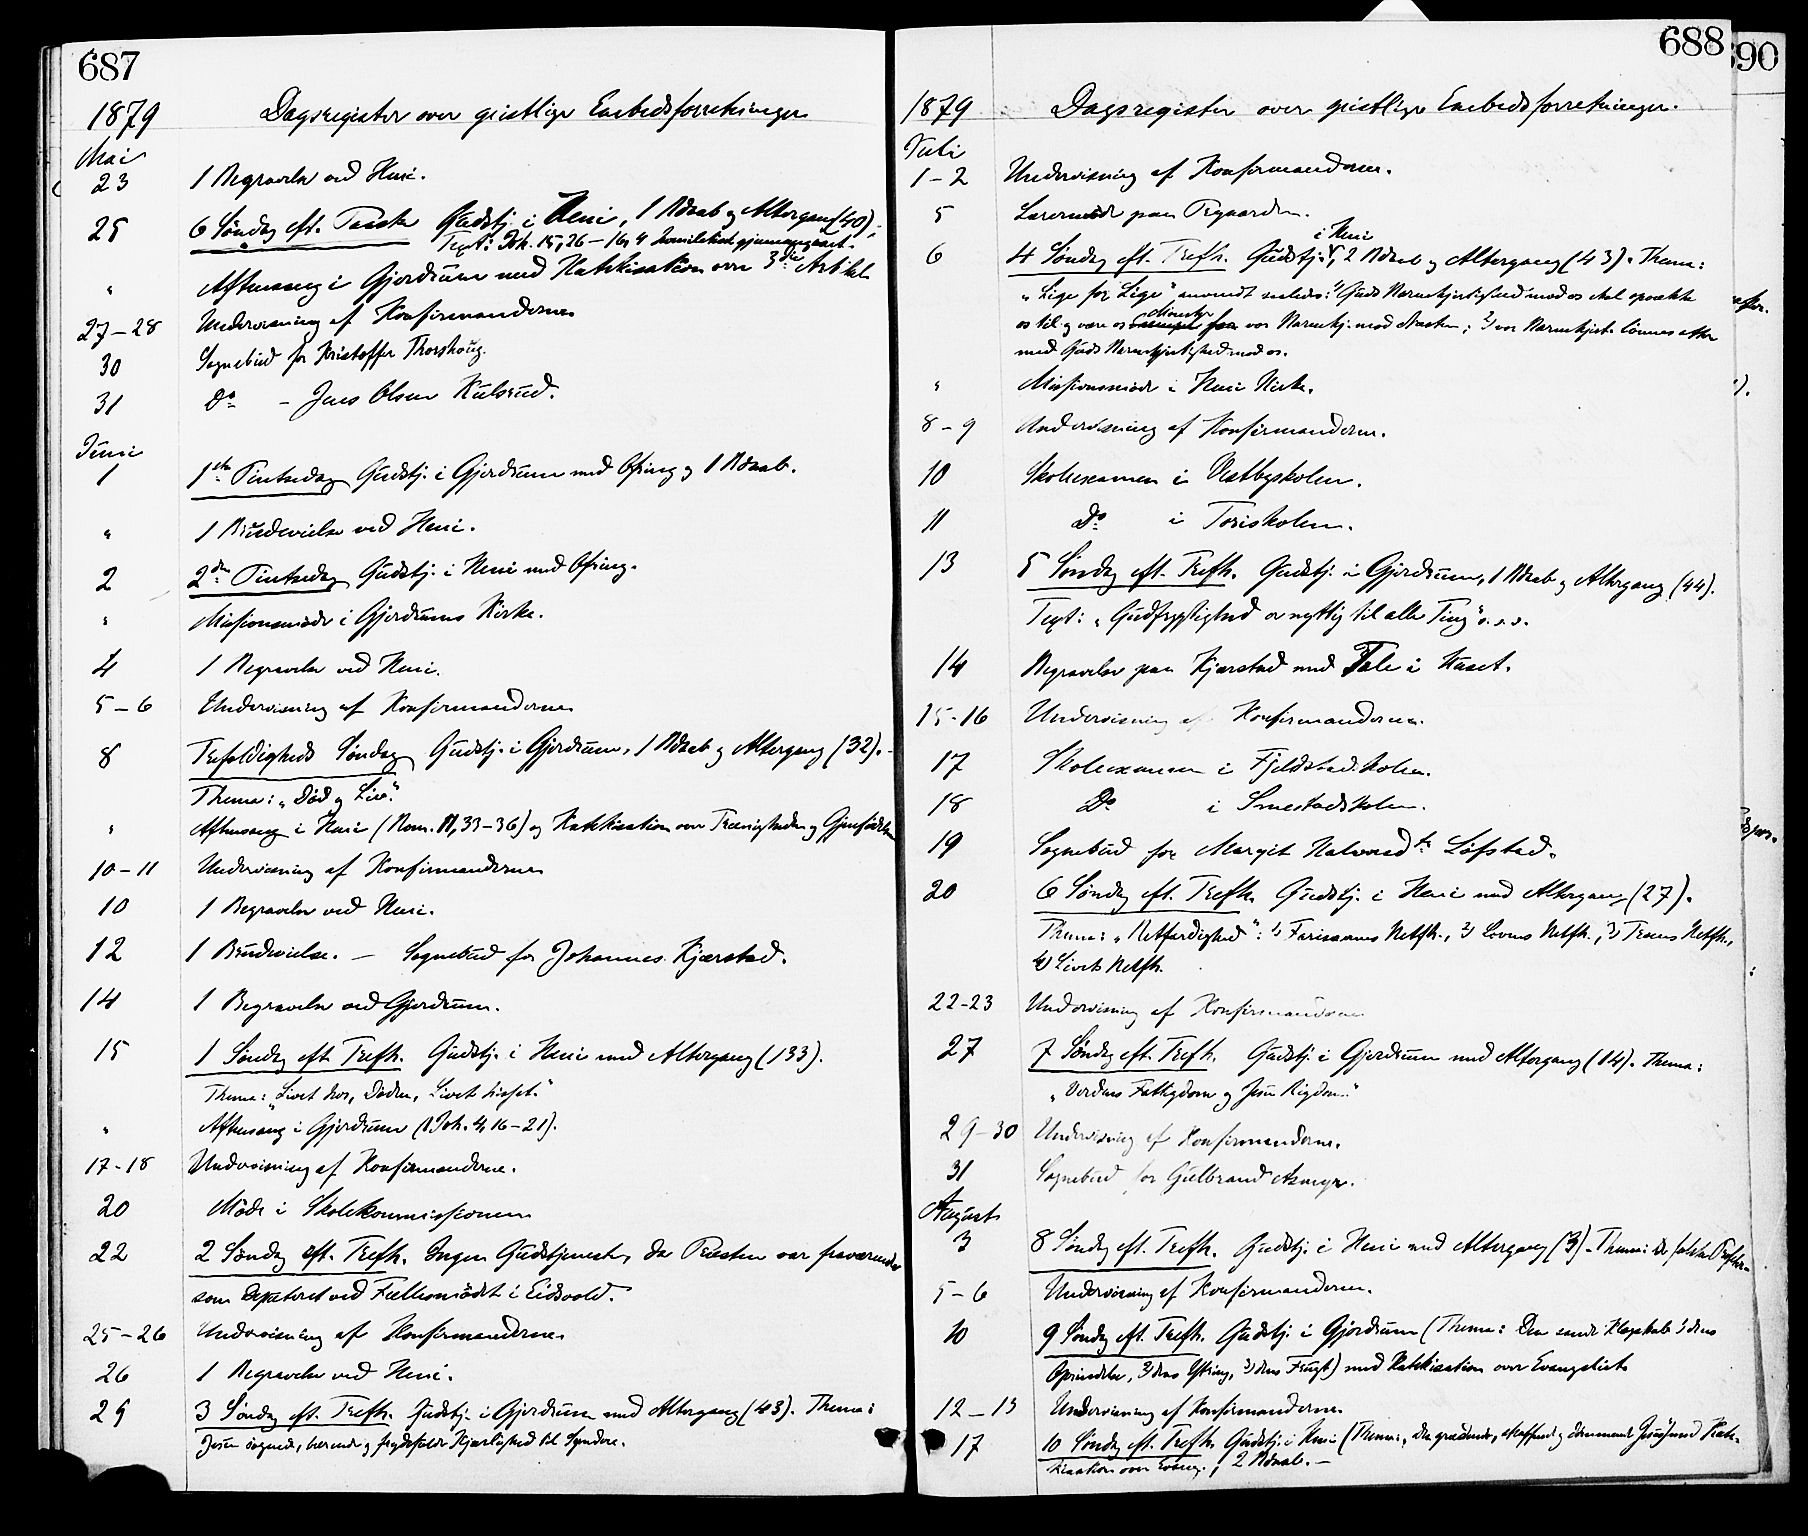 687
1879 Dagsregister over geistlige Embedsforretninger
Mai
23 1 Begravelse ved Heni.
25 6 Søndag eft. Paaske Gudstj. i Heni, 1 Daab og Altergang (40),
Text: Joh. 15,26 – 16,4 homiletisk gjennemgaaet.
" Aftensang i Gjerdrum med Katekisation over 3die Artikel
27–28 Undervisning af Konfirmanderne
30 Sognebud for Kristoffer Thorshoug.
31 Do – Jens Olsen Kulsrud.
Juni
1 1ste Pintsedag Gudstj. i Gjerdrum med Ofring og 1 Daab.
" 1 Brudevielse ved Heni.
2 2den Pintsedag Gudstj. i Heni med Ofring.
" Missionsmøde i Gjerdrums Kirke.
4 1 Begravelse ved Heni.
5–6 Undervisning af Konfirmanderne
8 Trefoldigheds Søndag Gudstj. i Gjerdrum, 1 Daab og Altergang (32).
Thema: "Død og Liv".
" Aftensang i Heni (Rom. 11,33–36) og Katekisation over Treenigheden og Gjenfødelsen
10–11 Undervisning af Konfirmanderne
10 1 Begravelse ved Heni.
12 1 Brudevielse. – Sognebud for Johannes Kjærstad.
14 1 Begravelse ved Gjerdrum.
15 1 Søndag eft. Trefh. Gudstj. i Heni med Altergang (133).
Thema: "Livet her, Døden, Livet hisset."
" Aftensang i Gjerdrum (1 Joh. 4,16–21).
17–18 Undervisning af Konfirmanderne.
20 Møde i Skolekommissionen
22 2 Søndag eft. Trefh. Ingen Gudstjeneste, da Præsten var fraværende
som deputeret ved Fællesmødet i Eidsvold.
25–26 Undervisning af Konfirmanderne
26 1 Begravelse ved Heni.
29 3 Søndag eft. Trefh. Gudstj. i Gjerdrum med Altergang (43). Thema:
Jesu søgende, bærende og frydefulde Kjærlighed til Syndere.
688
1879 Dagsregister over geistlige Embedsforretninger.
Juli
1–2 Undervisning af Konfirmanderne.
5 Lærermøde paa Prgaarden.
i Heni
6 4 Søndag eft. Trefh. Gudstj., 2 Daab og Altergang (43). Thema:
"Lige for Lige" anvendt saaledes: 1) Guds Barmhjertighed mod os skal opvække
os til og være os Mønster for vor Barmhj. mod Næsten; 2) vor Barmhjert. lønnes atter
med Guds Barmhjertighed mod os.
" Missionsmøde i Heni Kirke.
8–9 Undervisning af Konfirmanderne.
10 Skoleexamen i Vestbyskolen.
11 Do i Foriskolen.
13 5 Søndag eft. Trefh. Gudstj. i Gjerdrum, 1 Daab og Altergang (44).
Text: "Gudfrygtighed er nyttig til alle Ting" o.s.v.
14 Begravelse paa Kjærstad med Tale i Huset.
15–16 Undervisning af Konfirmanderne.
17 Skoleexamen i Fjeldstadskolen.
18 Do i Smestadskolen.
19 Sognebud for Margit Halvorsdtr Løfstad.
20 6 Søndag eft. Trefh. Gudstj. i Heni med Altergang (27).
Thema: "Retfærdighed": 1) Farisæernes Retfh., 2) Lovens Retfh., 3) Troens Retfh.,
4) Livets Retfh.
22–23 Undervisning af Konfirmanderne
27 7 Søndag eft. Trefh. Gudstj. i Gjerdrum med Altergang (14). Thema:
"Verdens Fattigdom og Jesu Rigdom."
29–30 Undervisning af Konfirmanderne.
31 Sognebud for Gulbrand Asmyr.
August
3 8 Søndag eft. Trefh. Gudstj. i Heni med Altergang (3). Thema: de falske Profeter
5–6 Undervisning af Konfirmanderne.
10 9 Søndag eft. Trefh. Gudstj. i Gjerdrum (Thema: Den sande Klogskab 1) dens
Oprindelse, 2) dens Ytring, 3) dens Frugt) med Katekisation over Evangeliet
12–13 Undervisning af Konfirmanderne.
17 10 Søndag eft. Trefh. Gudstj. i Heni (Thema: "Den grædende, straffende og dømmende Jesus) med Kate-
kisation over Evang., 2 Daab. –
690